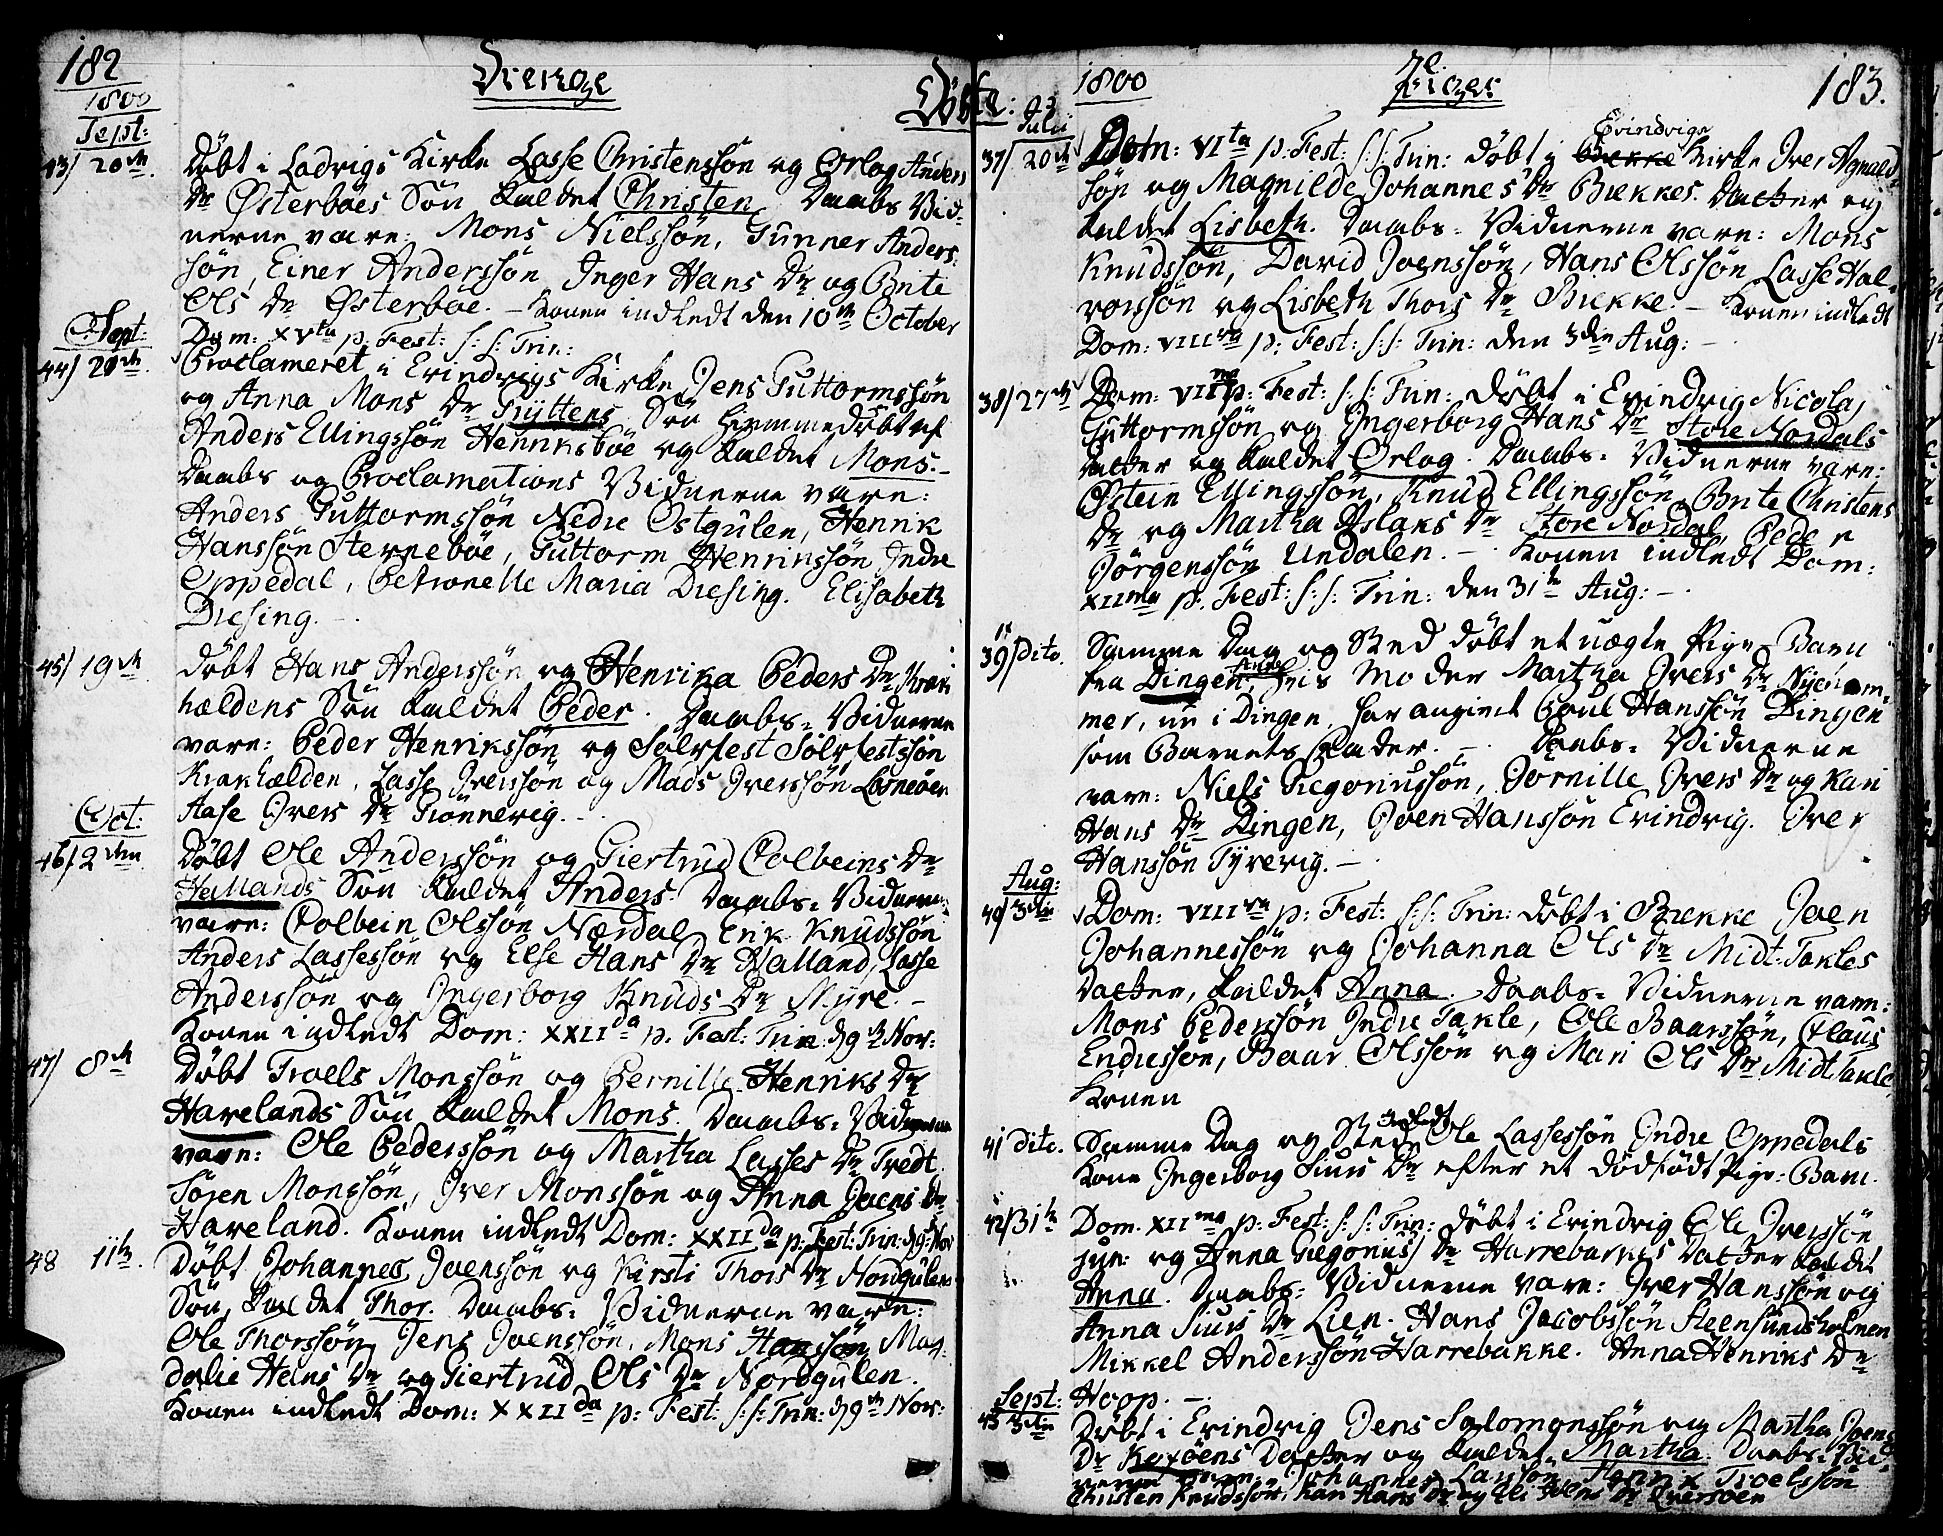 182
1800
Drenge
Døbte:
Sept:
43/ 20de Døbt i Ladvigs Kirke Lasse Christenssøn og Orlog Anders
Dr Østerbøes Søn kaldet Christen. Daabs Vid-
nerne vare: Mons Nielssøn, Gunner Anders
søn, Einer Anderssøn, Inger Hans Dr og Brite
Ols Dr Østerbøe. - Konen indledt den 10de October
Sept:
Dom: XVta p. Fest: s: s: Trin:
44/ Proclameret i Evindvigs Kirke Jens Guttormssøn
og Anna Mons Dr Tyttens Søn hiemmedøbt af
Anders Ellingssøn Henriksbøe og kaldet Mons.-
Daabs og Proclamations Vidnerne vare:
Anders Guttormssøn Nedre Ostgulen, Henrik
Hanssøn Sternebøe, Guttorm Henrikssøn Indre
Oppedal, Petronelle Maria Diesing. Elisabeth
Diesing.
45/ 19de Døbt Hans Anderssøn og Henrika Peders Dr Krak
hældens Søn kaldet Peder. Daabs-Vidnerne
vare: Peder Henrikssøn og Sølvfest Sølvfestssøn
Krakhælden, Lasse Iverssøn og Mads Iverssøn Losneøen
Aase Ivers Dr Grønnevig.
Oct:
46/ 2den Døbt Ole Anderssøn og Giertrud Colbeins Dr
Hallands Søn kaldet Anders. Daabs-Vidnerne
vare: Colbein Olssøn Nærdal, Erik Knudssøn
Anders Lassessøn og Else Hans Dr Halland, Lasse
Anderssøn og Ingerborg Knuds Dr Myre. -
Konen indledt Dom: XXIIda p. Fest: Trin: d 9de Nov:
47/ 8de Døbt Troels Monssøn og Pernille Henriks Dr
Havelands Søn kaldet Mons. Daabs-Vidnerne
vare: Ole Pederssøn og Martha Lasses Dr Tredt
Søren Monssøn, Iver Monssøn og Anna Joens Dr
Haveland. Konen indledt Dom: XXIIda p: Fest: Trin: d 9de Nov
48 11te Døbt Johannes Joenssøn og Kirsti Thors Dr Nordgulens
Søn, kaldet Thor. Daabs-Vidnerne vare:
Ole Thorssøn, Jens Joenssøn, Mons Hanssøn, Mag-
dalie Dr og Giertrud Ols Dr Nordgulen.
Konen indledt Dom: XXIIda p: Fest: s: s: Trin: d 9de Nov:
1800
Piger
183.
Julii
37/ 20de Dom: VIta p: Fest: s: s: Trin: døbt i Evindvigs Kirke Iver Agnald-
søn og Magnilde Johannes Dr Brekkes Datter og
kaldet Lisbeth. Daabs-Vidnerne vare: Mons
Knudssøn, David Joenssøn, Hans Olssøn, Lasse Hal-
vorssøn og Lisbeth Thors Dr Brekke. - Konen indledt
Dom: VIIIva p: Fest: s: s: Trin: den 3die Aug: -
38/ 27de Dom: VIIma p: Fest: s: s: Trin: døbt i Evindvig Nicolaj
Guttormssøn og Ingerborg Hans Dr Store Nordals
Datter og kaldet Orlog. Daabs-Vidnerne vare:
Østein Ellingssøn, Knud Ellingssøn, Brite Christens
Dr og Martha Aslaks Dr Store Nordal, Peder
Jørgenssøn Undalen. - Konen indledt Dom:
XIIma p. Fest: s: s: Trin: den 31te Aug: -
39/ Dito. Samme Dag og Sted døbt et uægte Pige Barn
fra Dingen, Moder Martha Ivers Dr Nyeham-
mer, nu i Dingen, har angivet Poul Hanssøn Dingen
som Barnets Fader. - Daabs-Vidnerne
vare: Niels Gregoriussøn, Pernille Ivers Dr og Kari
Hans Dr Dingen, Joen Hanssøn Evindvig. Iver
Hanssøn Tyvevig. -
Aug:
40/ 3die Dom: VIIIva p: Fest: s: s: Trin: døbt i Brekke Joen
Johannessøn og Johanna Ols Dr Midt-Takles
Datter, kaldet Anna. Daabs-Vidnerne vare:
Mons Pederssøn Indre Takle, Ole Baarssøn, Claus
Endressøn, Baar Olssøn og Mari Ols Dr Midt-Takle
Konen
41 Dito. Samme Dag og Sted indledt Ole Lassessøn Indre Oppedals
Kone Ingerborg Siurs Dr efter et dødfødt Pige-Barn.
42/ 31te Dom. XIIma p: Fest: s: s: Trin: døbt i Evindvig Ole Iverssøn
jun: og Anna Gregorius Dr Harrebakkes Datter kaldet
Anna. Daabs-Vidnerne vare: Iver Hanssøn og
Anna Siurs Dr Lien. Hans Jacobssøn Steensundsholmen
Mikkel Anderssøn Harrebakke. Anna Henriks Dr
Hoop. -
Sept:
43 3die Døbt i Evindvig Jens Salomonssøn og Martha Joens
Dr Kaxøens Datter og kaldet Martha. Daabs-Vid-
nerne vare: Johannes Larssøn, Henrik Troelssøn
Christen Knudssøn, Kari Hans Dr og